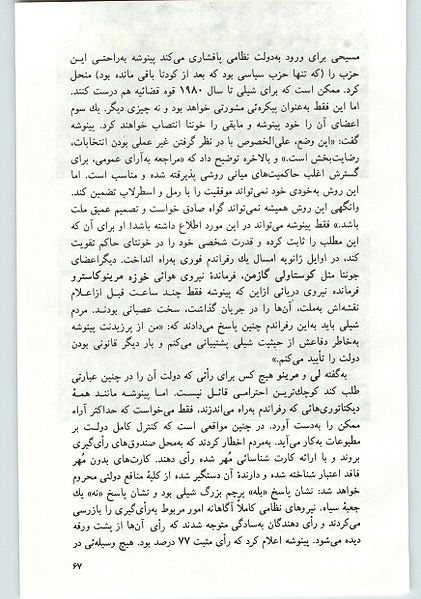 مسیحی برای ورود به‌دولت نظامی پافشاری می‌کند پینوشه به‌راحتی این
حزب را (که تنها حزب سیاسی بود که بعد از کودتا باقی مانده بود) منحل
کرد. ممکن است که برای شیلی تا سال ۱۹۸۰ قوه قضائیه هم درست کنند.
اما این فقط به‌عنوان پیکره‌ئی مشورتی خواهد بود و نه چیزی دیگر. یك سوم
اعضای آن را خود پینوشه و مابقی را خونتا انتصاب خواهند کرد. پینوشه
گفت: «این وضع، علی‌الخصوص با در نظر گرفتن غیر عملی بودن انتخابات،
رضایت‌بخش است.» و بالاخره توضیح داد که «مراجعه به‌آرای عمومی، برای
گسترش اغلب حاکمیت‌های میانی روشی پذیرفته شده و مناسب است. اما
این روش به‌خودی خود نمی‌تواند موفقیت را با رمل و اسطرلاب تضمین کند.
وانگهی این روش همیشه نمی‌تواند گواه صادق خواست و تصمیم عمیق ملت
باشد.» فقط پینوشه می‌تواند در این مورد اطلاع داشته باشد! او برای آن که
این مطلب را ثابت کرده و قدرت شخصی خود را در خونتای حاکم تقویت
کند، در اوایل ژانویه امسال یك رفراندم فوری به‌راه انداخت. دیگراعضای
جونتا مثل کوستاولی گازمن، فرماندهٔ نیروی هوائی خوزه مرینوکاسترو
فرمانده نیروی دریائی ازاین که پینوشه فقط چند ساعت قبل ازاعلام
نقشه‌اش به‌ملت، آن‌ها را در جریان گذاشت، سخت عصبانی بودند. مردم
شیلی باید به‌این رفراندم چنین پاسخ می‌دادند که: «من از پرزیدنت پینوشه
به‌خاطر دفاعش از حیثیت شیلی پشتیبانی می‌کنم و بار دیگر قانونی بودن
دولت را تأیید می‌کنم.»
به‌گفته لی و مرینو هیچ کس برای رأئی که دولت آن را در چنین عبارتی
طلب کند کوچك‌ترین احترامی قائل نیست. اما پینوشه مانند همهٔ
دیکتاتوری‌هائی که رفراندم به‌راه می‌اندزند، فقط می‌خواست که حداکثر آراء
ممکن را به‌دست آورد. در چنین مواقعی است که کنترل کامل دولت بر
مطبوعات به‌کار می‌آید. به‌مردم اخطار کردند که به‌محل صندوق‌های رأی‌گیری
بروند و با ارائه کارت شناسائی مُهر شده رأی دهند. کارت‌های بدون مُهر
فاقد اعتبار شناخته شده و دارندهٔ آن دستگیر شده از کلیهٔ منافع دولتی محروم
خواهد شد: نشان پاسخ «بله» پرچم بزرگ شیلی بود و نشان پاسخ «نه» یك
جعبهٔ سیاه. نیروهای نظامی کاملاً آگاهانه امور مربوط به‌رأی‌گیری را بازرسی
می‌کردند و رأی دهندگان به‌سادگی متوجه شدند که رأی آن‌ها از پشت ورقه
دیده می‌شود. پینوشه اعلام کرد که رأی مثبت ۷۷ درصد بود. هیچ وسیله‌ئی در
۶۷